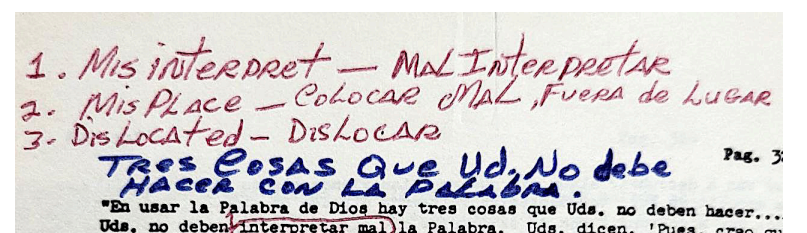 1. Misinterpret — Mal Interpretar
2. MisPlace — Colocar Mal, Fuera de Lugar
3. Dislocated — Dislocar
Tres Cosas Que Ud. No debe
Pag.
Hacer con la Palabra.
"En usar la Palabra de Dios hay tres cosas que Uds. no deben hacer....
Uds. no deben interpretar mal la Palabra. Uds. dicen, 'Pues, creo